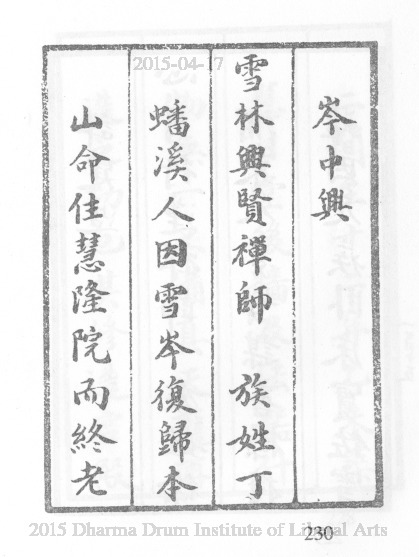 岑中興
雪林興賢禪師 族姓丁
蟠溪人因雪岑復歸本
山命住慧隆院而終老
2015-04-17
230
2015 Dharma Drum Institute of Liberal Arts